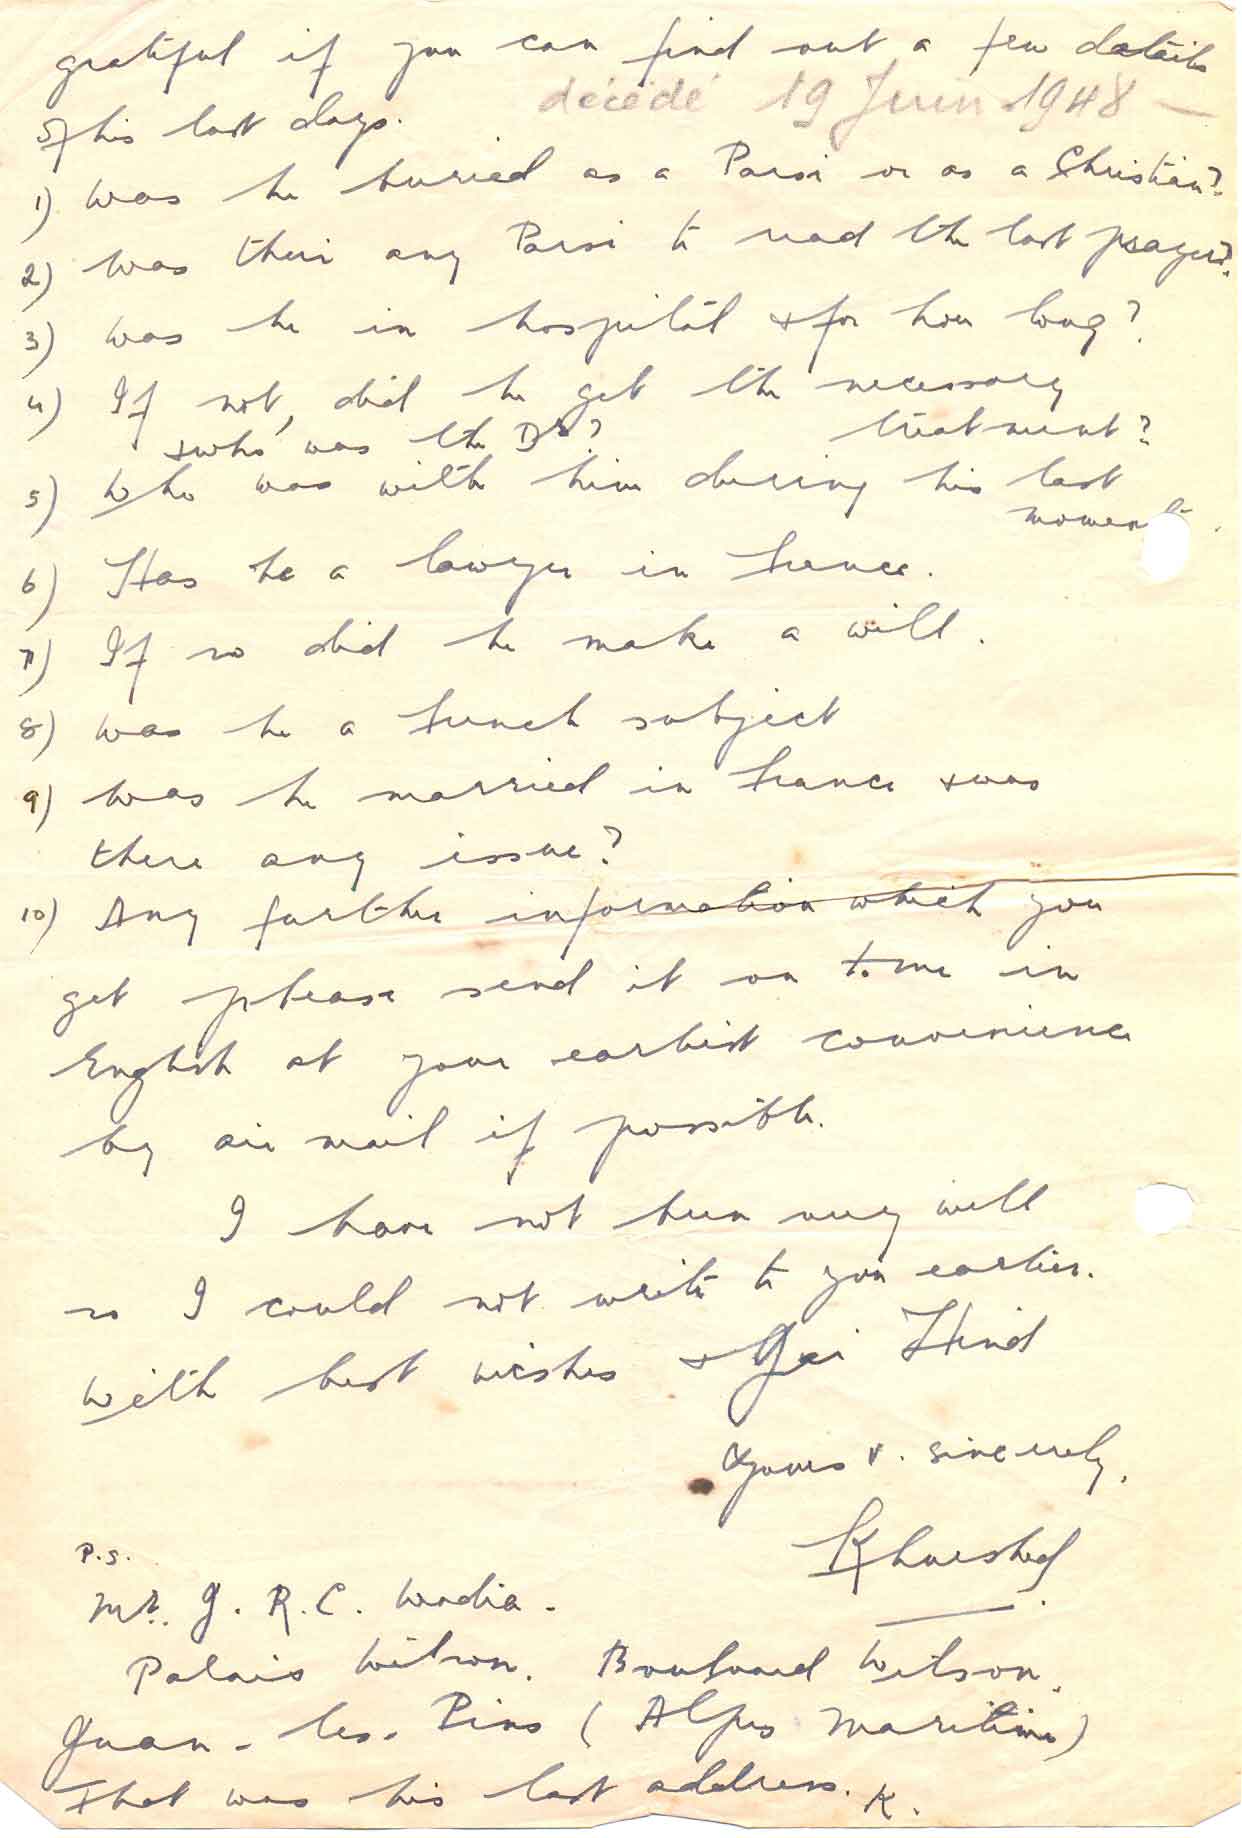 grateful if you can find out a few details
décédé 19 Juin 1948 —
of his last days.
1) was he buried as a Parsi or as a Christian?
2) was their any Parsi to read the last prayers?
3) was he in hospital & for how long?
4) If not, did he get the necessary
treatment?
& who was the Dr?
5) Who was with him during his last
moments.
6) Has he a lawyer in France.
7) If so did he make a will.
8) was he a French subject
9) was he married in France & was
there any issue?
10) Any further information which you
get please send it on to me in
English at your earliest convenience
by air mail if possible.
I have not been very well
so I could not write to you earlier.
With best wishes & Jai Hind
Yours v. sincerely,
Khurshed.
P.S.
Mr. J. R. C. Wadia.
Palais Wilson. Boulevard Wilson.
Juan-les-Pins (Alpes Maritime)
That was his last address. K.